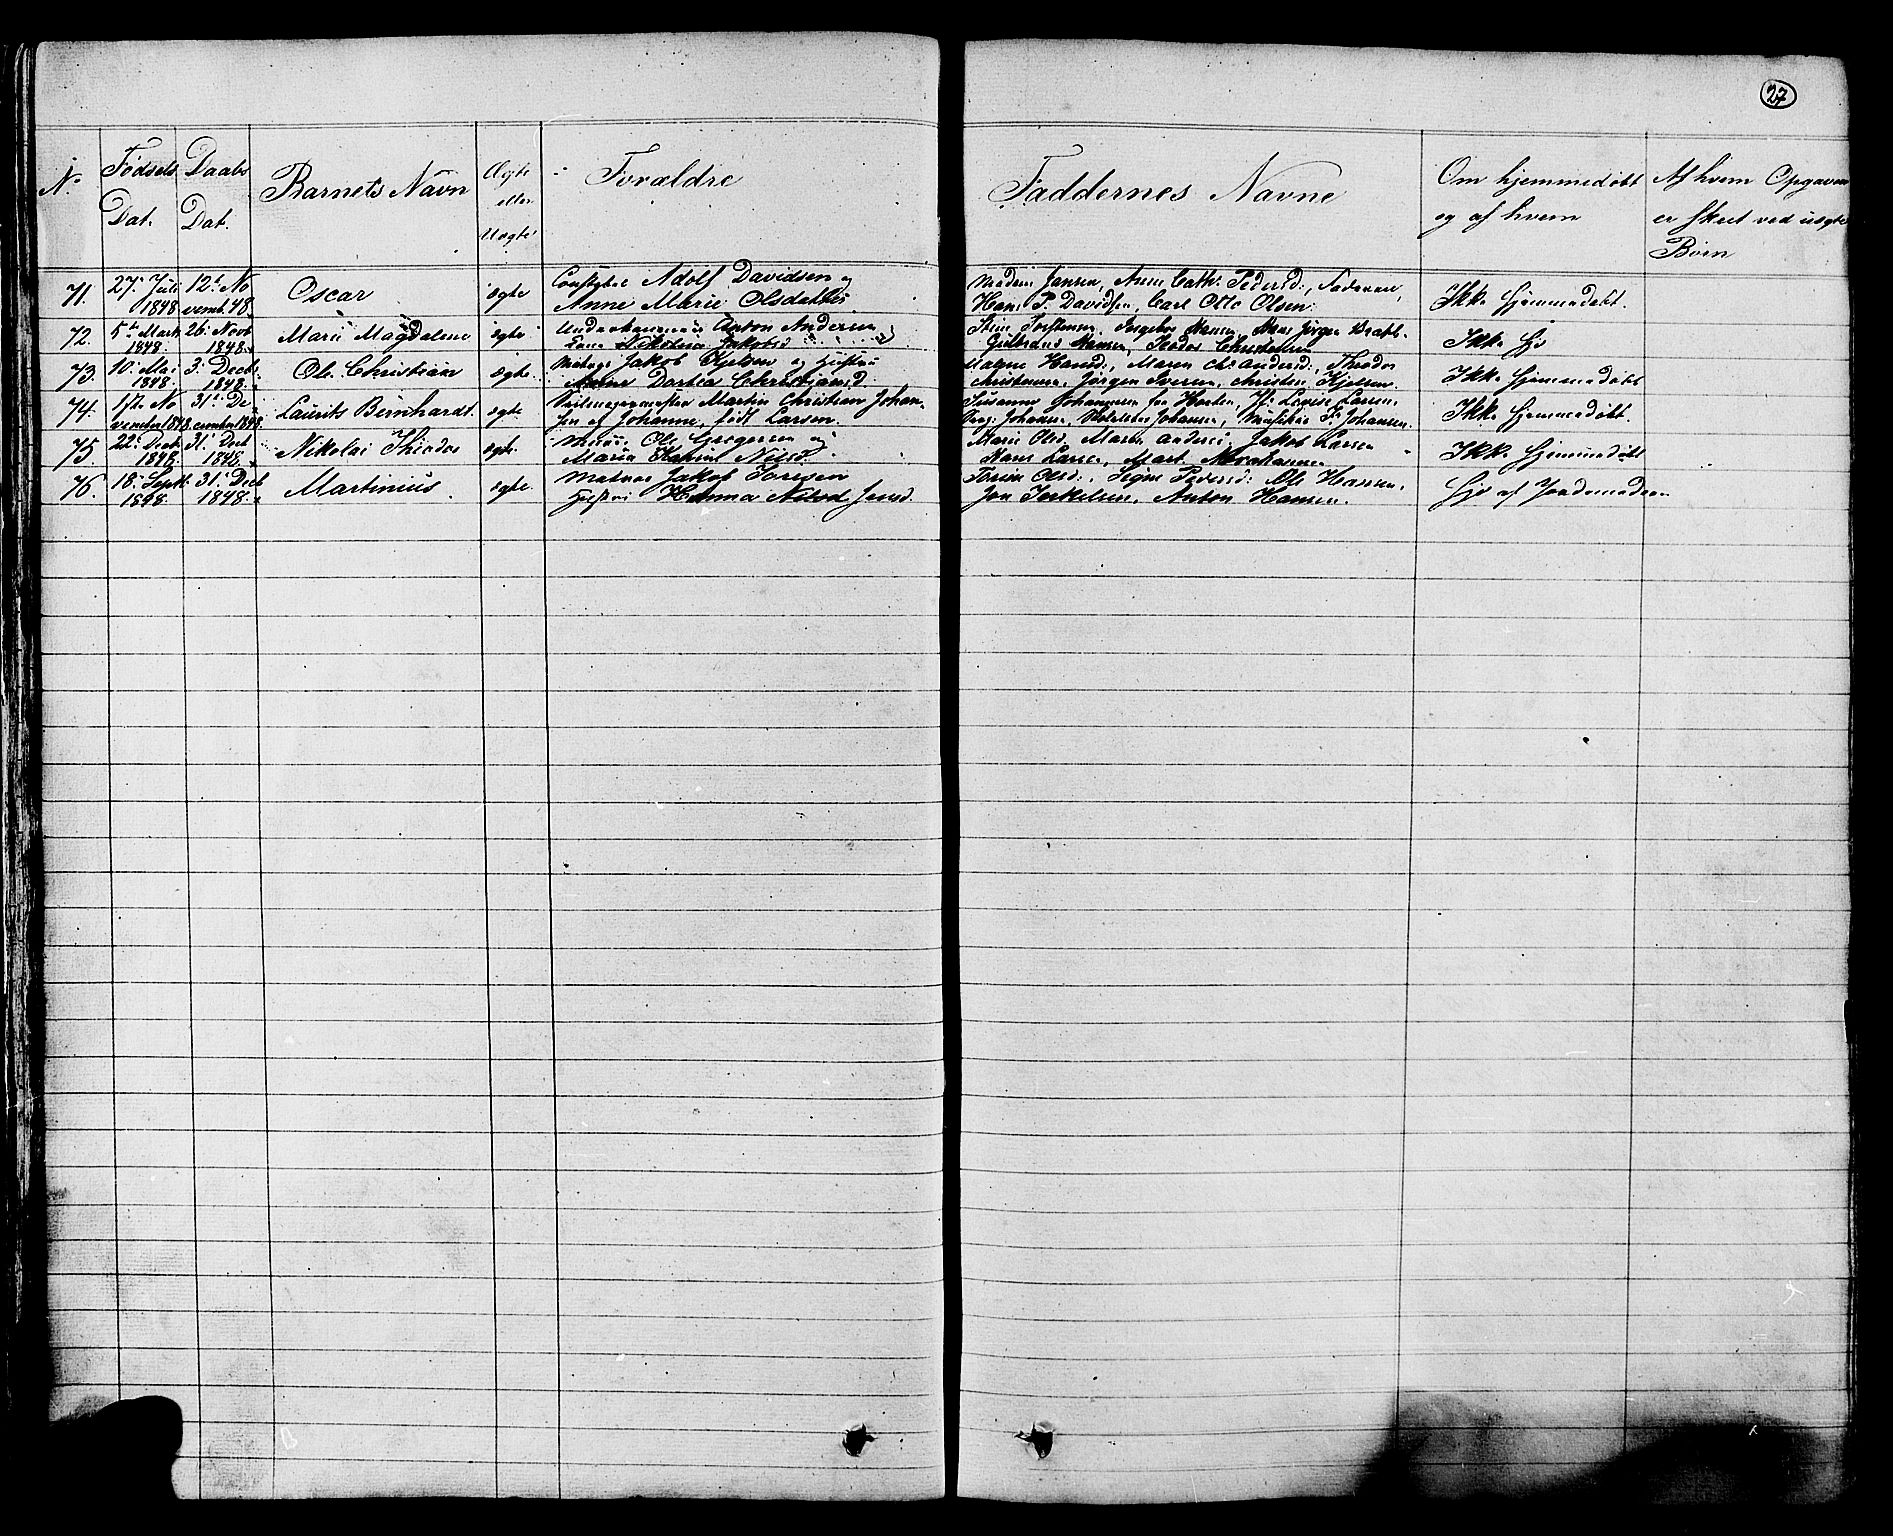 27
N. Fødsels Dat. Daabs Dat. Barnets Navn Ægte eller Uægte Forældre Faddernes Navne Om hjemmedøbt og af hvem Af hvem Opgaven er skeet ved uægte Børn
71. 27. Juli 1848 12t. November 48. Oscar ægte Adolf Davidsen og
Anne Marie Olsdatter
Madam Jansen, Anne Cath. Pedersd., Faderen,
Hans P. Davidsen, Carl Otto Olsen.
Ikke hjemmedøbt.
72. 5t. Marts 1848. 26. Novb 1848. Marie Magdalene ægte Anton Andersen
Nikolina Jakobsd
Ingebor Hansen, Hans Jörgen
Hansen, Teodor Christensen
Ikke hj
73. 10. Mai 1848. 3. Decb 1848. Ole Christian ægte Jakob Kjelsen og Hustru
Dortea Christiansd
Hansd., Maren Ch. Andersd., Theodor
Christensen, Jörgen Iversen, Christen Kjelsen.
Ikke hjemmedøbt
74. 17t. November 1848. 31t. December 1848. Laurits Bernhardt. ægte Martin Christian Johan-
sen og Johanne, født Larsen.
Susanne Johannesen Louise Larsen,
Johansen, Johansen, Johansen.
Ikke hjemmedøbt.
75. 22. Decb 1848. 31. Decb 1848. Nikolai Theodor ægte. Ole Gregersen og
Maria
Marie Olsd, Andersd, Jakob Larsen
Hans Larsen, Mart.
Ikke hjemmedøbt
76. 18. Septb. 1848. 31. Decb 1848. Martinius ægte Matros Jakob Toresen
Hustru Hanna Jensd.
Olsd., Signe Pedersd. Ole Hansen,
Jon Terkelsen, Anton Hansen.
Hj. af Jordemoderen